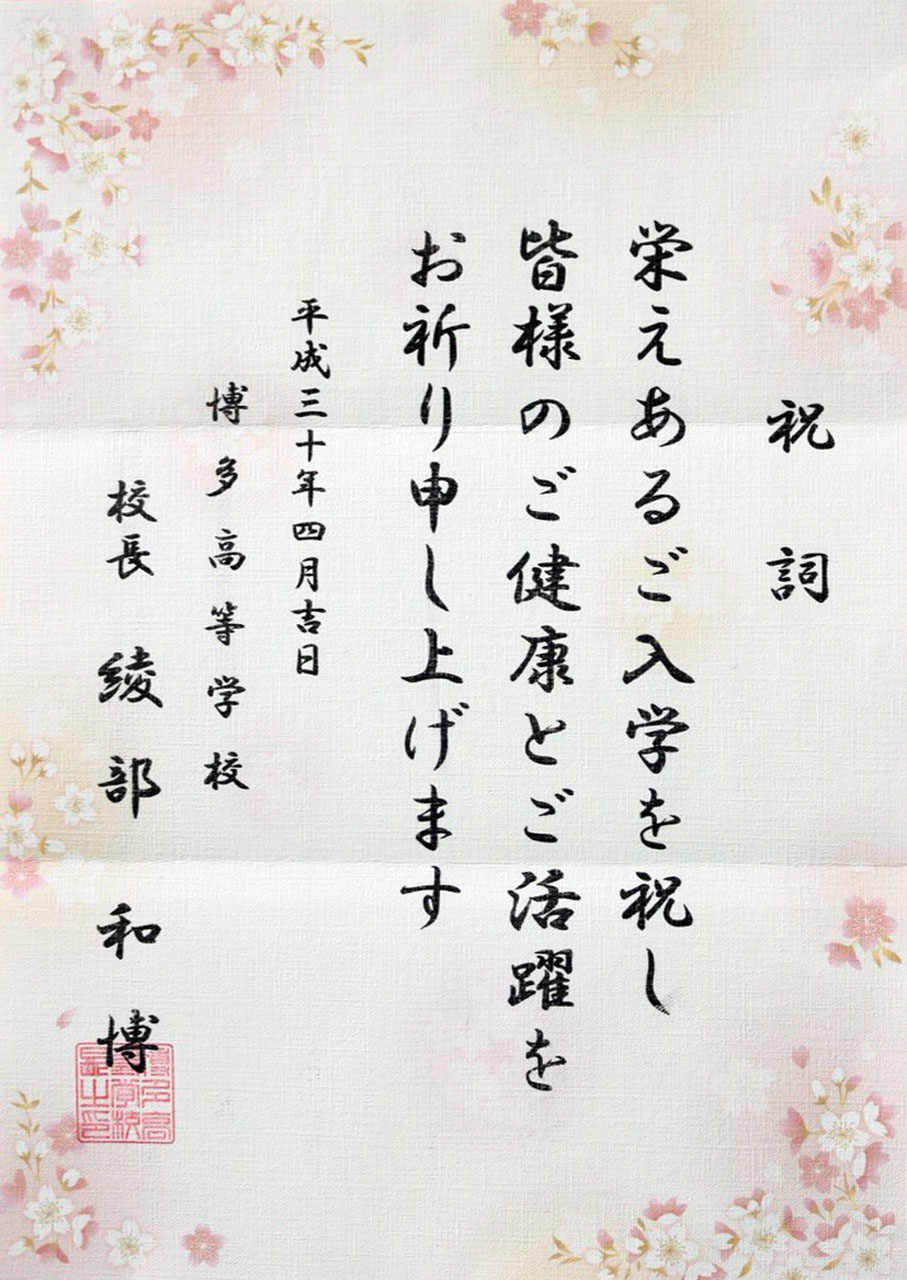 祝詞
栄えあるご入学を祝し
皆様のご健康とご活躍を
お祈り申し上げます
平成三十年四月吉日
博多高等学校
校長 綾部 和博